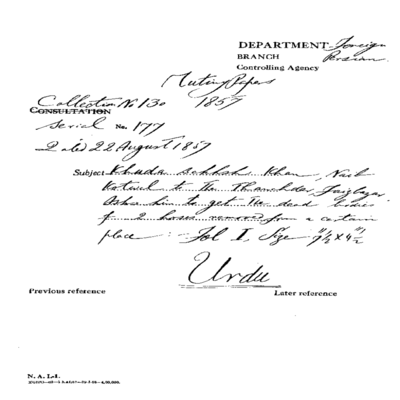 DEPARTMENT Foreign
BRANCH Persian
Controlling Agency
Mutiny Papers
Collection No 130 1857
CONSULTATION
Serial No. 177
Dated 22 August 1857
Subject Khuda Bakhsh Khan, Naib
Kotwal to the Thanedar, Faizbazar
Asks him to get the dead bodies
of 2 horses removed from a certain
place :- Fol I. Size
Urdu
Previous reference Later reference
N. A. I.-1.